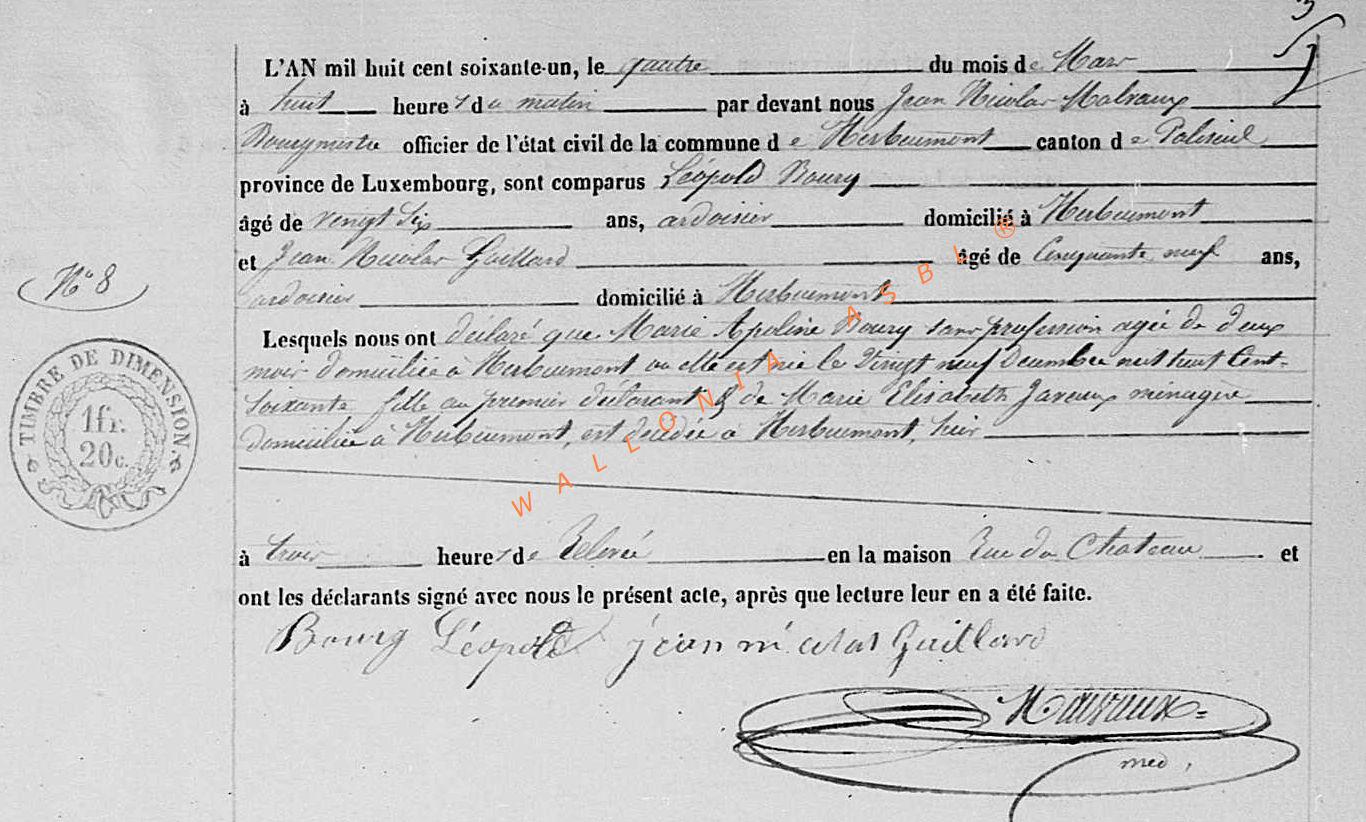 3
L'AN mil huit cent soixante-un, le quatre du mois de Mars
à huit heures du matin par devant nous Jean Nicolas Malvaux
Bourgmestre officier de l'état civil de la commune de Herbeumont canton de Paliseul
province de Luxembourg, sont comparus Léopold Bourg
âgé de vingt six ans, ardoisier domicilié à Herbeumont
et Jean Nicolas Guillard âgé de Cinquante neuf ans,
N° 8
ardoisier domicilié à Herbeumont
Lesquels nous ont déclaré que Marie Apoline Bourg sans profession agée de deux
mois domiciliée à Herbeumont ou elle est née le vingt neuf Decembre mil huit Cent
soixante fille au premier déclarant & de Marie Elisabeth Javeux ménagère
domiciliée à Herbeumont, est decedée à Herbeumont, hier
à trois heures de Relevée en la maison Rue du Chateau et
ont les déclarants signé avec nous le présent acte, après que lecture leur en a été faite.
Bourg Léopold jean nicolas Guillard
Malvaux
TIMBRE DE DIMENSION.
1fr.
20c.
WALLONIA ASBL ®